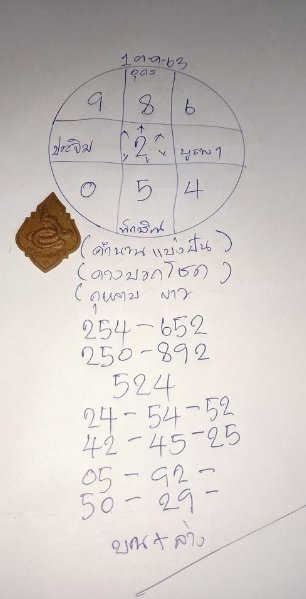 1 ต.ค.63
อุดร
9 8 6
ประจิม 2 บูรพา
0 5 4
ทักษิณ
(คำนวน แบ่งปัน)
(ดวงบอกโชค)
(กุหลาบ ขาว)
254-652
250-892
524
24-54-52
42-45-25
05-92-
50-29-
บน+ล่าง